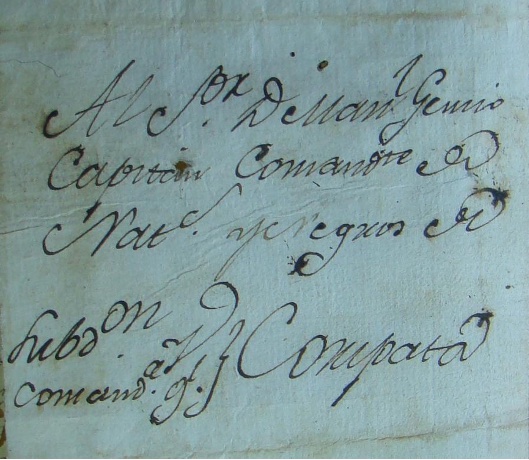 Al S.or D.n Man.l Gemio
Capitan Comand.te de
Nat.s y Negros de
Subd.on
Comand.a g.l Compata